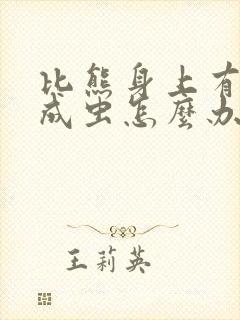 比熊身上有
成虫怎麼办
王莉英